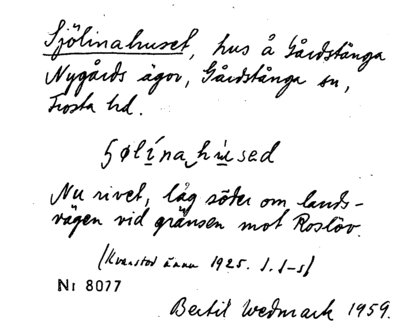 Sjölinahuset, hus å Gårdstånga
Nygårds ägor, Gårdstånga sn,
Frosta hd.
ʃølínahu̇sed
Nu rivet, låg söder om lands-
vägen vid gränsen mot Roslöv.
(Kvarstod ännu 1925. J. I-s)
Nr 8077
Bertil Wedmark 1959.